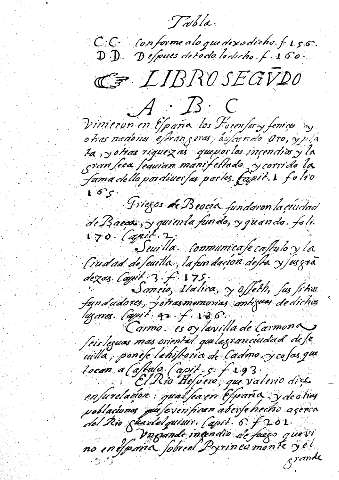 Tabla.
C. C. Conforme a lo que dexo dicho. f 156.
D. D. Despues de todo lo dicho. f. 160.
LIBRO SEGVDO
A. B. C
Vinieron en España los Focenses y fenices y
otras naciones estrangeras, buscando Oro, y pla
ta, y otras riquezas que en los incendios y la
gran seca se auian manifestado, y corrido la
fama della por diuersas partes. Capit. 1 folio
165.
Griegos de Beocia fundaron la ciudad
de Baeça, y quien la fundo, y quando. foli.
170. Capit. 2.
Seuilla. comunicase castulo y la
Ciudad de seuilla, la fundacion desta y sus grã
dezas. Capit. 3. f. 175.
Sancio, Italica, y Osseth, sus sitios
fundadores, y otras memorias antiguas de dichos
lugares. Capit. 4. f. 186.
Caimo. es oy la villa de Carmona
seis leguas mas oriental q̃ la gran ciudad de se
uilla, ponese la historia de Cadmo, y cosas que
tocan a Castulo. Capit. 5. f. 193.
El Rio Hespero, que valerio dize
en su relacion. qual sea en España, y de otras
poblaciones que se verifican aberse hecho acerca
del Rio guadalquiuir. Capit. 6. f 201.
Un grande incendio de fuego que vi
no en españa sobre el Pyrineo monte y el
grande